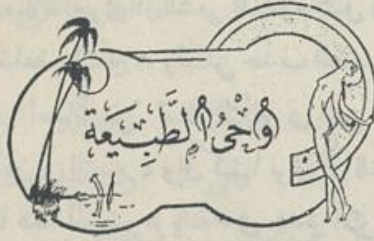 وَحْيُ الطَّبِيْعَة